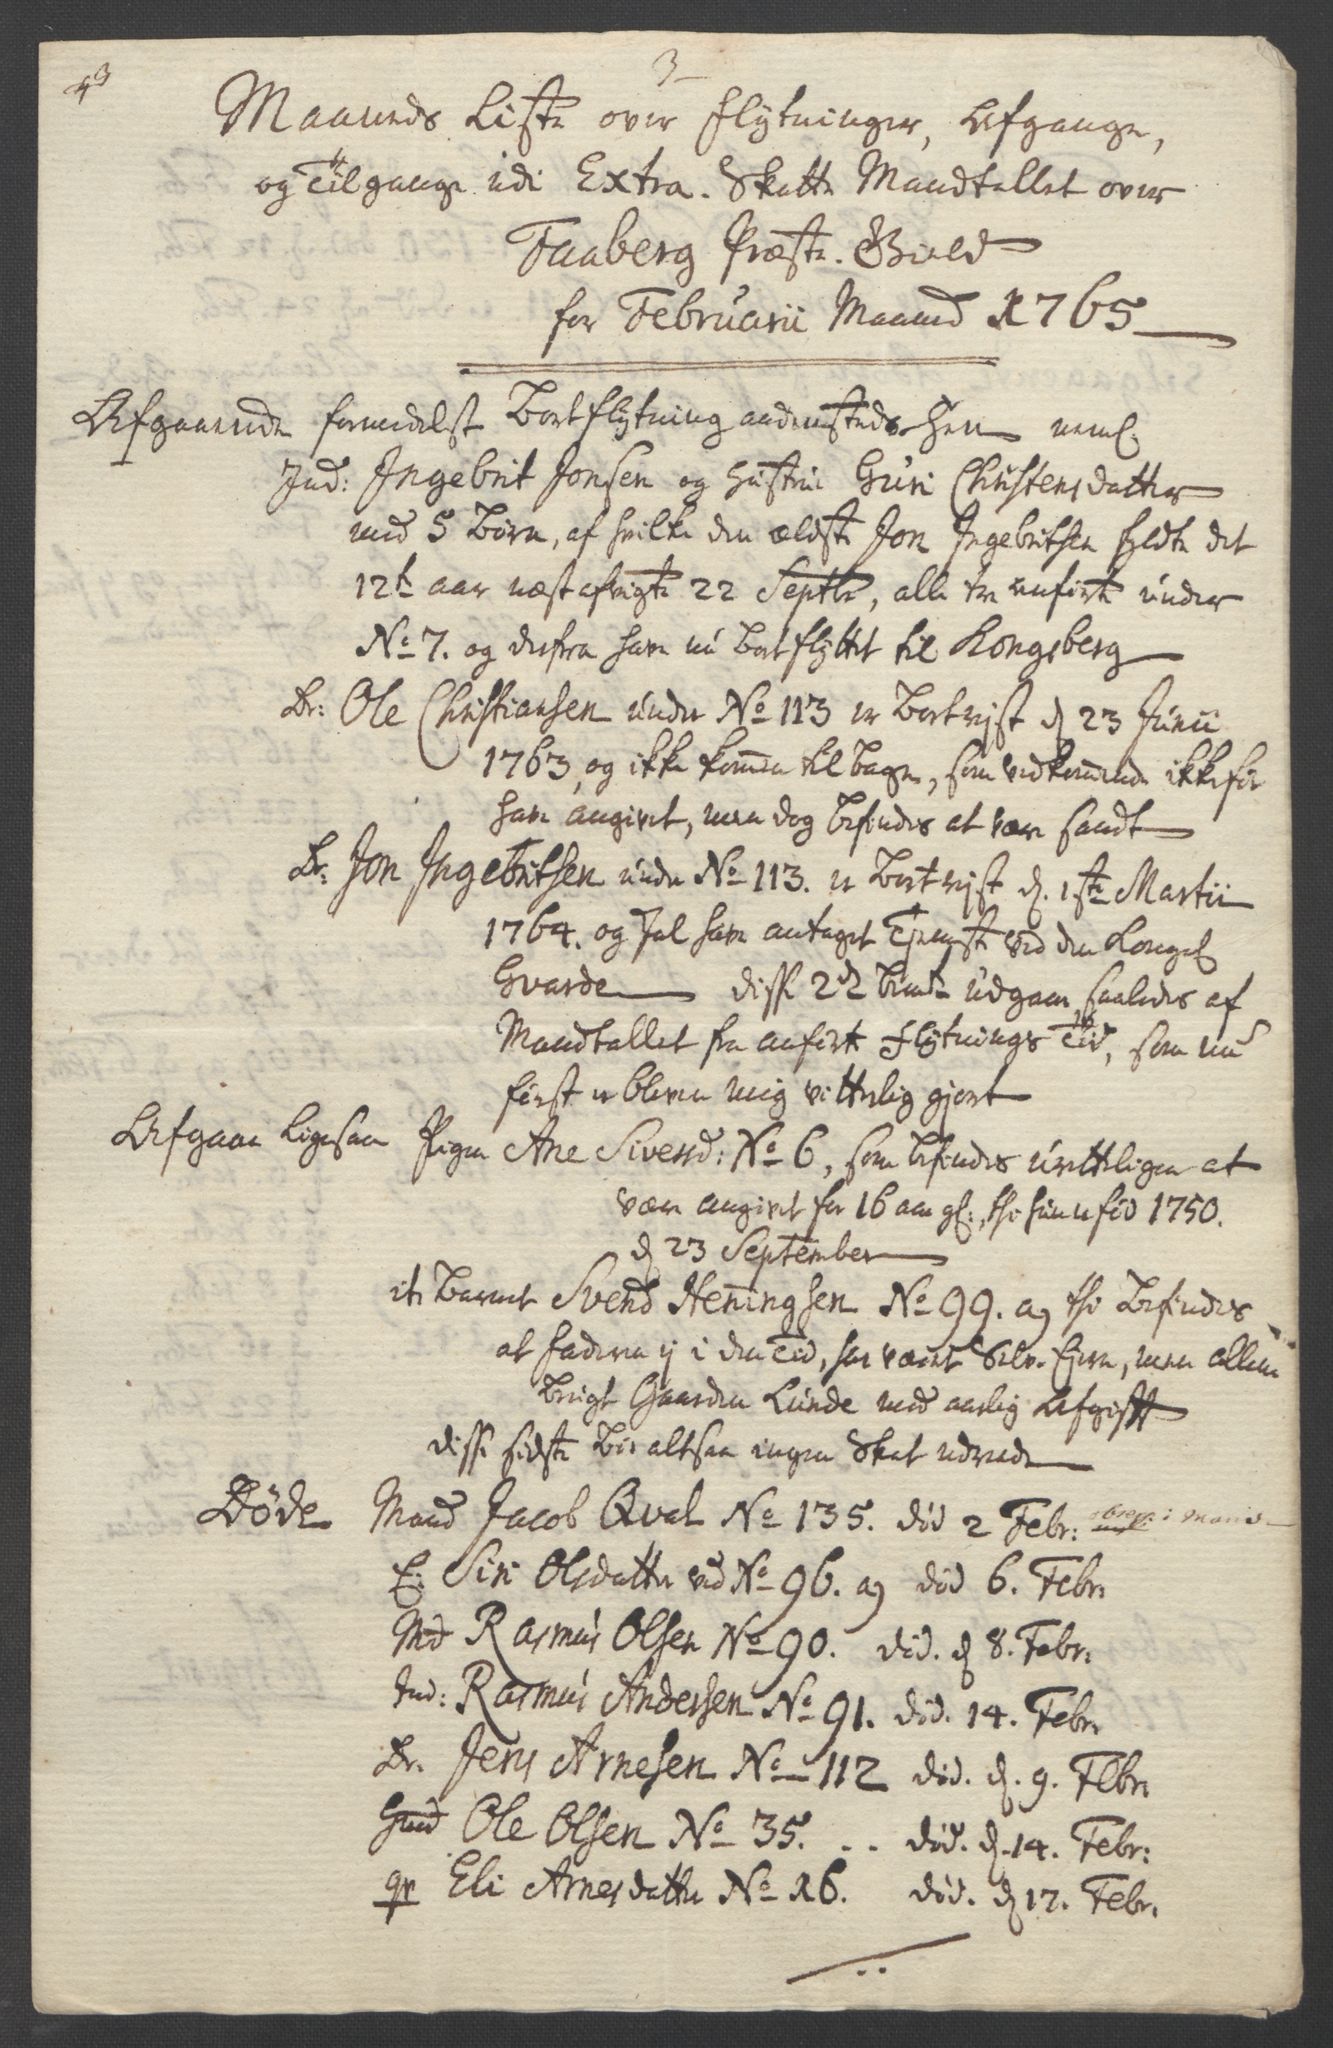 3
Maaneds Liste over Flytninger, Afgange,
og Tilgange udi Extra-Skatte Mandtallet over
Faaberg Præste-Gield
for Februarii Maaned 1765
Afgaaende formedelst Bortflytning andensteds hen neml:
Ind: Ingebrit Jonsen og Hustrue Guri Christensdatter
med 5 Børn, af hvilke den ældste Jon Ingebritsen fyldte det
12te aar næst afvigte 22 Septbr, alle er anførte under
No 7. og derfra have nu bortflyttet til Kongsberg
Dr: Ole Christiansen under No 113 er bortrejst d 23 Junii
1763, og ikke kommen tilbage, som vedkommende ikke før
have angivet, men dog befindes at være sandt
Dr: Jon Ingebritsen under No 113. er bortrejst d. 1ste Martii
1764. og skal have antaget Tjeneste ved den Kongel
Gvarde disse 2de udgaar saaledes af
Mandtallet fra anførte Flytnings Tid, som nu
først er bleven mig vitterlig gjort
Afgaar ligesaa Pigen Ane Siversd: No 6, som befindes urettelig at
være angivet for 16 aar gl:, thi hun er fød 1750.
d 23 September
it: Barnet Svend Heningsen No 99. a, thi befindes
at Faderen ej i den Tid, har været Selv-Ejer, men allene
brugt Gaarden Lunde med aarlig Afgift
disse sidste bør altsaa ingen Skat udrede
Døde Mand Jacob Qval No 135. død 2 Febr:
E: Siri Olsdatter ved No 96. a, død 6. Febr:
Md Rasmus Olsen No 90. død. d 8. Febr:
Ind: Rasmus Andersen No 91. død. 14. Febr.
Dr. Jens Arnesen No 112 død. d. 9. Febr
Ole Olsen No 35. .. død. d. 14. Febr:
qv Eli Arnesdatter No 26. død. d 17. Febr.